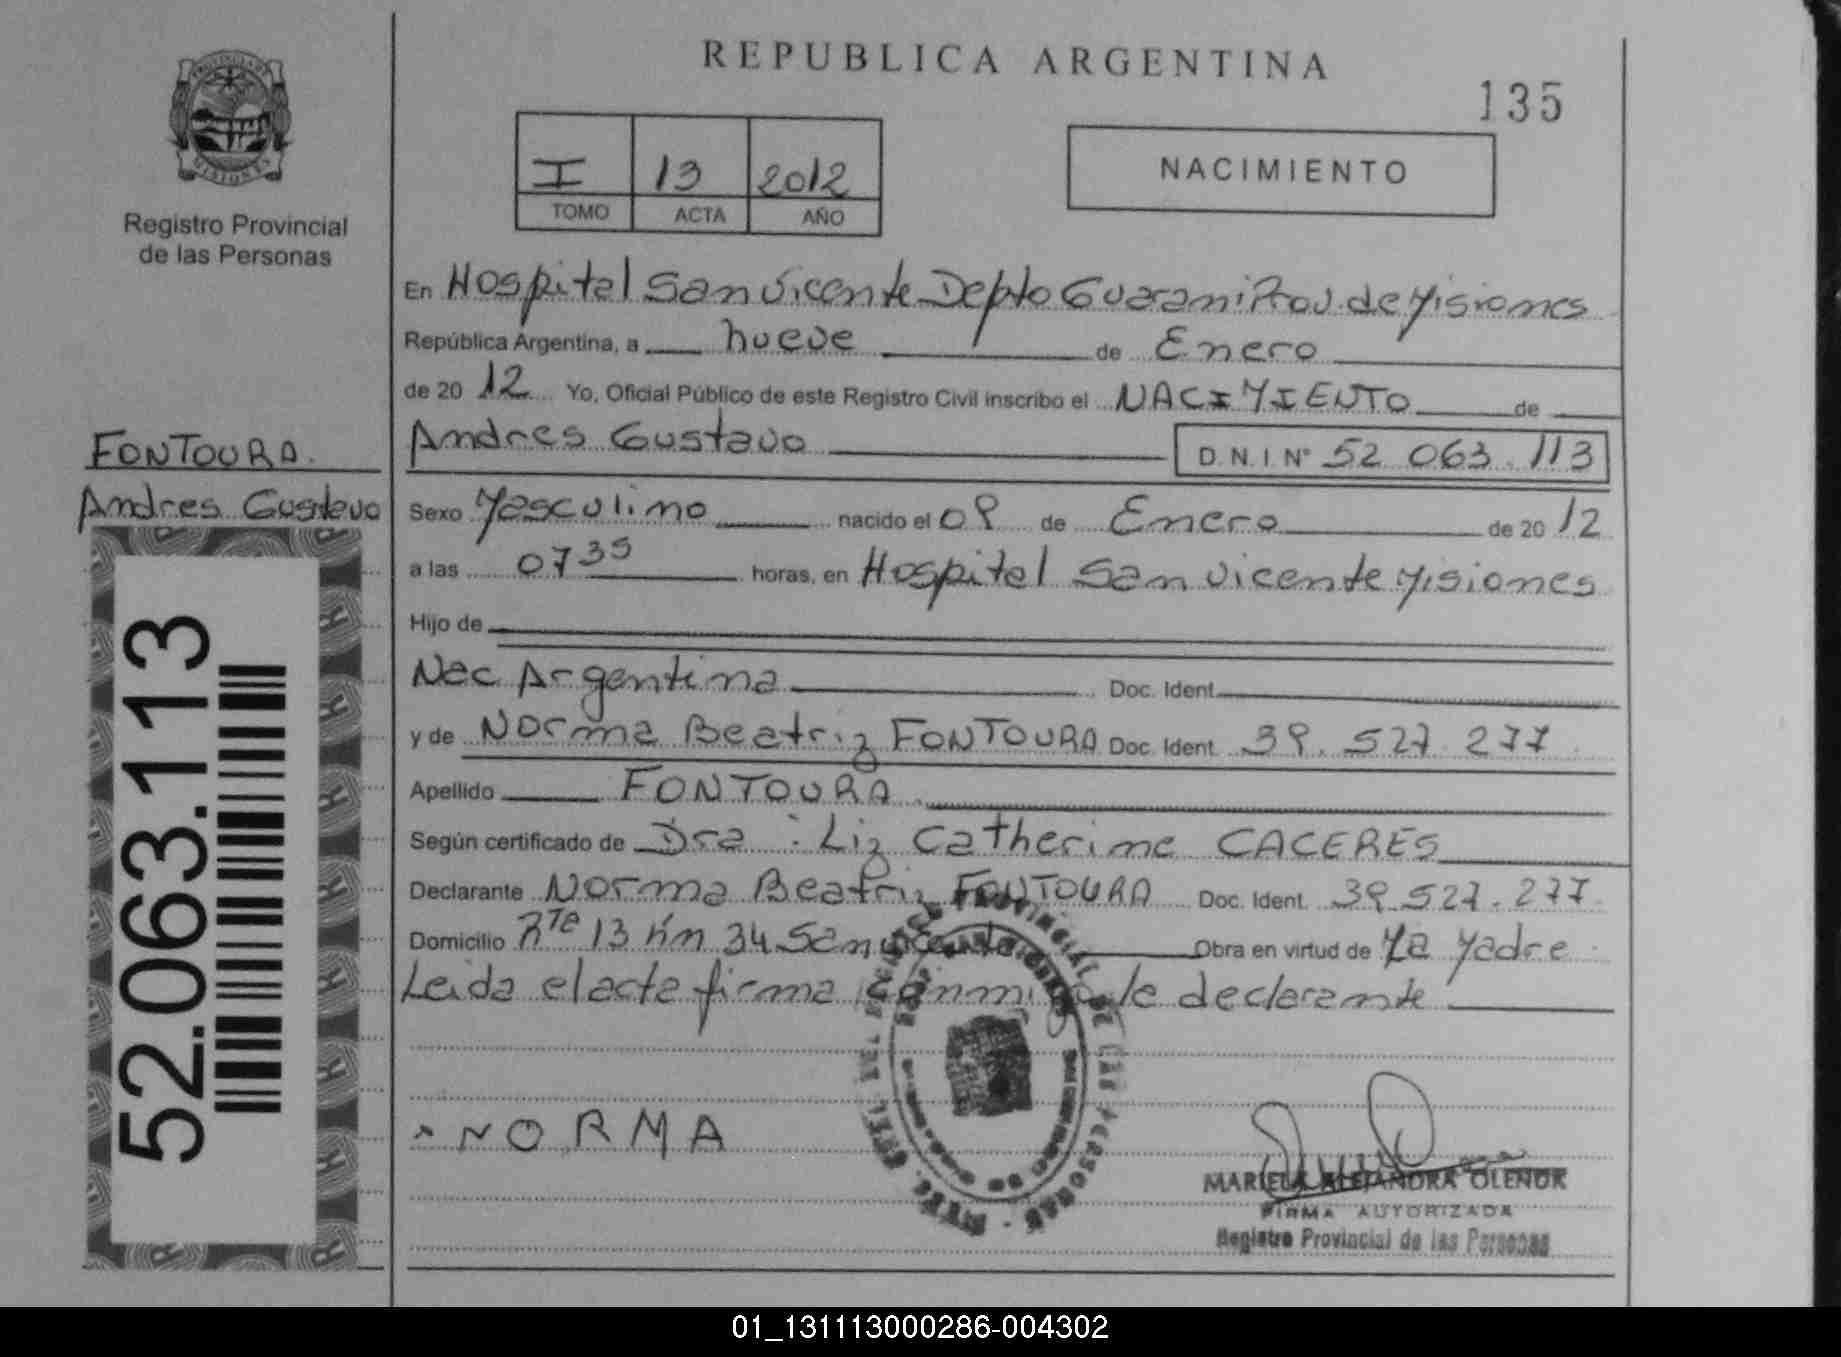 REPUBLICA ARGENTINA
135
PROVINCIA DE
MISIONES
Registro Provincial
de las Personas
I 13 2012
TOMO ACTA AÑO
NACIMIENTO
En Hospital San Vicente Depto Guarani Prov. de Misiones
República Argentina, a nueve de Enero
de 20 12 Yo, Oficial Público de este Registro Civil inscribo el NACIMIENTO de
Andres Gustavo D.N.I. N° 52 063.113
FONTOURA.
Andres Gustavo
Sexo Masculino nacido el 09 de Enero de 20 12
a las 07 35 horas, en Hospital San Vicente Misiones
Hijo de
Nac Argentina Doc. Ident.
y de Norma Beatriz FONTOURA Doc. Ident. 39.527.277
Apellido FONTOURA
Según certificado de Dra: Liz Catherine CACERES
Declarante Norma Beatriz FONTOURA Doc. Ident. 39.527.277
Domicilio Rta 13 Km 34 San Vicente Obra en virtud de La Madre
Leida el acta firma conmigo la declarante
52.063.113
NORMA
MARIELA ALEJANDRA OLENOK
FIRMA AUTORIZADA
Registro Provincial de las Personas
01_131113000286-004302